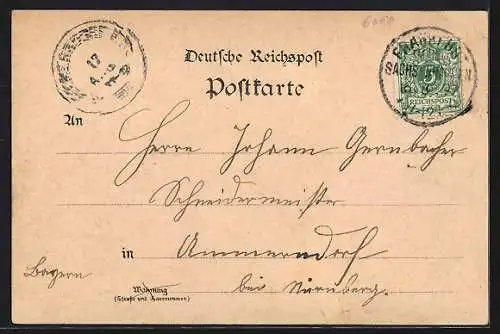 6000
Deutsche Reichspost
Postkarte
FRANKFURT
SACHS
5
REICHSPOST
17
An
Herrn Johann Gernbacher
Schneidermeister
in Ammerndorf
Bayern
bei Nürnberg.
Wohnung
(Straße und Hausnummer)